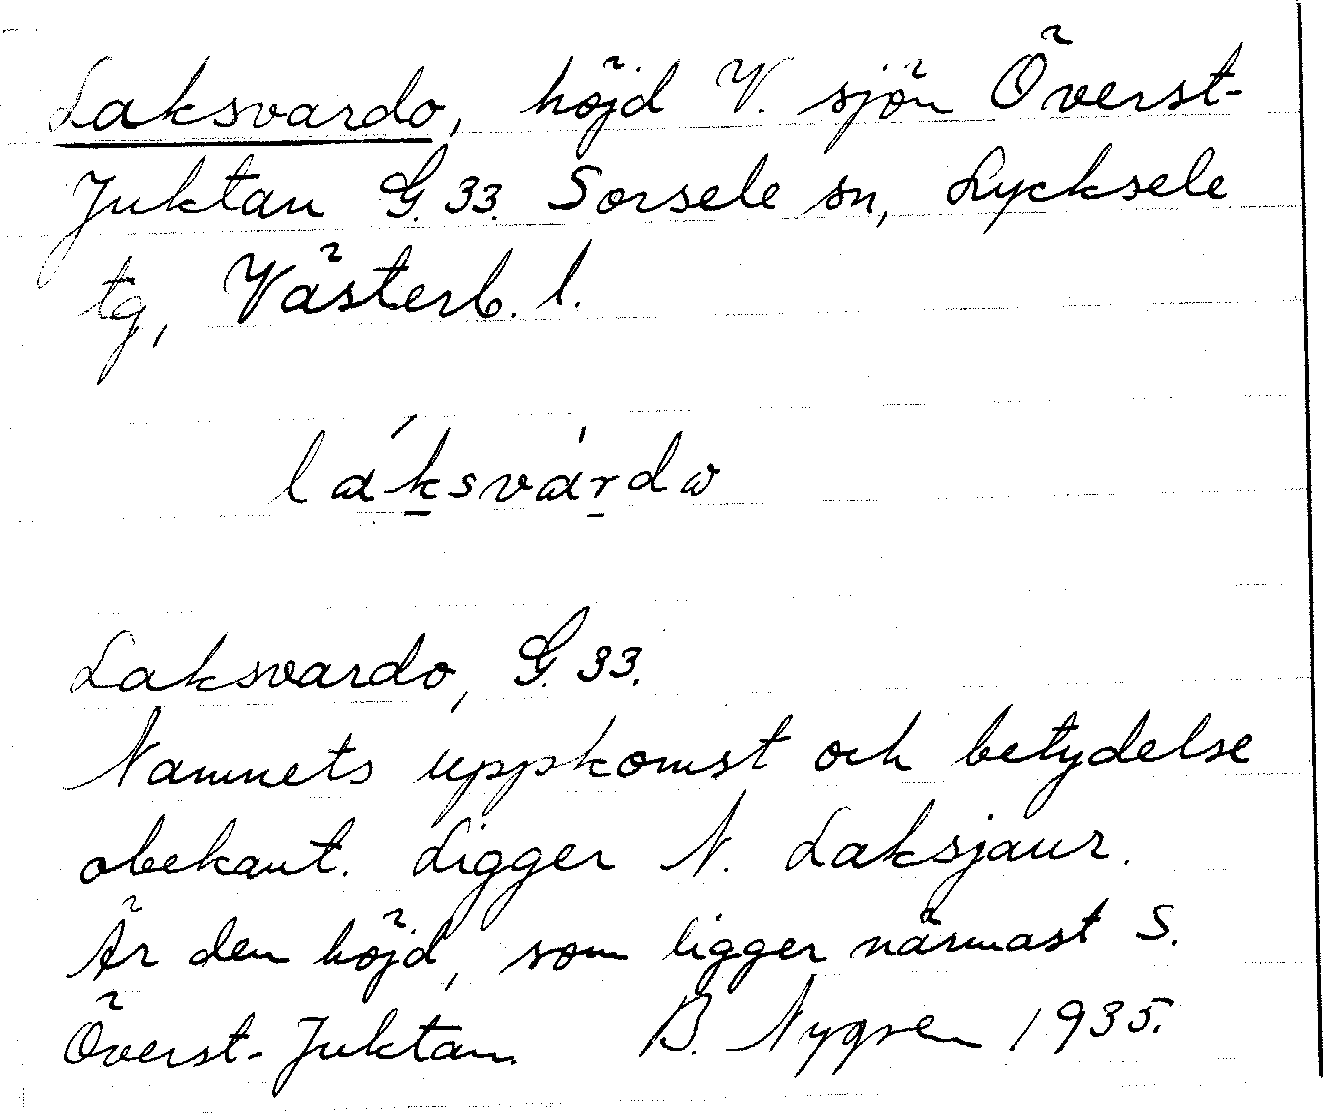 Laksvardo, höjd V. sjön Överst-
Juktan G. 33. Sorsele sn, Lycksele
tg, Västerb. l.
láksvárdω
Laksvardo, G. 33.
Namnets uppkomst och betydelse
obekant. Ligger N. Laksjaur.
Är den höjd, som ligger närmast S.
Överst-Juktan. B. Nygren 1935.